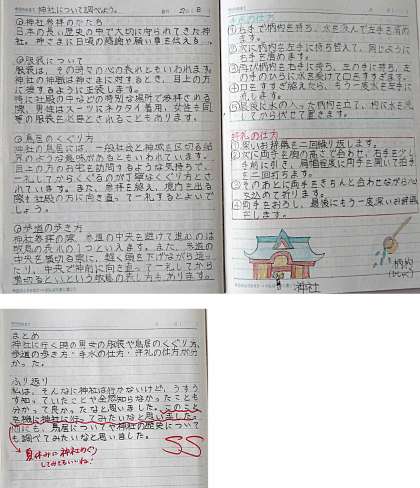 神社について調べよう。
①神社参拝のかたち
日本の長い歴史の中で大切に守られてきた神
社。神さまに日頃の感謝や願い事を伝える
②服装について
服装は、その時々の心の表れともいわれます。
神社の神職は神さまに対するとき、目上の方
に接するように正装します。
特に社殿の中などの特別な場所で参拝される
際、男性はスーツにネクタイ着用、女性も同
等の服装を必要とされることもあります。
③鳥居のくぐり方
神社の鳥居には、一般社会と神域を区切る結
界のような意味があるともいわれています。
目上の方のお宅を訪問するような気持ちで、
一礼してからくぐるのが丁寧なくぐり方とさ
れています。また、参拝を終え、境内を出る
際も社殿の方に向き直って一礼するとよいで
しょう。
④参道の歩き方
神社参拝の際、参道の中央を避けて進むのは
敬意の表れの1つといえます。また、参道の
中央を横切る際に、軽く頭を下げながら通っ
たり、中央で神前に向き直って一礼してから
横切るといという敬意の表し方もあります。
手水の仕方
①右手で柄杓を持ち、水を汲んで左手を清め
ます。
②次に柄杓を左手に持ち替えて、同じように
右手を清めます。
③再び柄杓を右手に持ち、左の手のひらに水を受けて口をすすぎます。
④口をすすぎ終えたら、もう一度左手を水に
流します。
⑤最後に水の入った柄杓を立て、柄に水を流
してから伏せて置きます。
拝礼の仕方
①深いお辞儀を二回繰り返します。
②次に両手を胸の高さで合わせ、右手を少し
手前に引き、肩幅程度に両手を開いて拍手
を二回打ちます。
③そのあとに両手をきちんと合わせながら心
を込めて祈ります。
④両手をおろし、最後にもう一度深いお辞儀
をします。
神社
柄杓
(ひしゃく)
まとめ
神社に行く時の男女の服装や鳥居のくぐり方、
参道の歩き方・手水の仕方・拝礼の仕方が分
かった。
ふり返り
私は、そんなに神社は行かないけど、うすう
す知っていたことや全然知らなかったことも
分かって良かったなと思いました。このこと
を機に神社に行ってみたいなと思いました。
他にも、鳥居についてや神社の歴史について
も調べてみたいなと思いました。
夏休みに神社めぐり
してみてもいいね!
SS